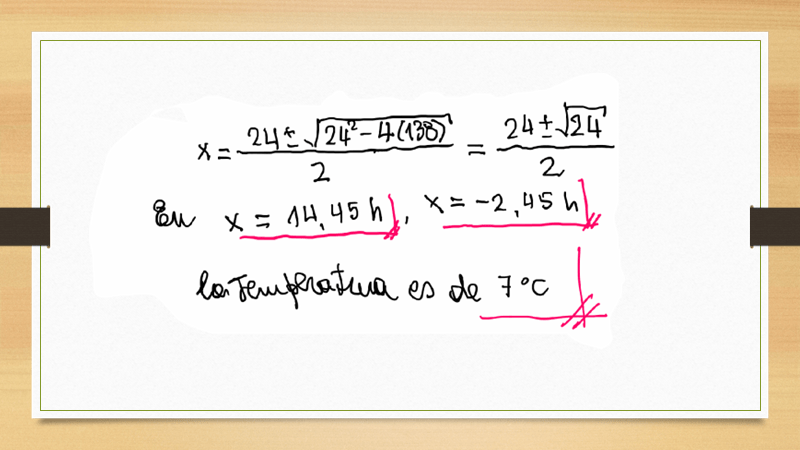 x = 24 ± √24² - 4(138) / 2 = 24 ± √24 / 2
En x = 14,45 h, x = -2,45 h
la temperatura es de 7 °C